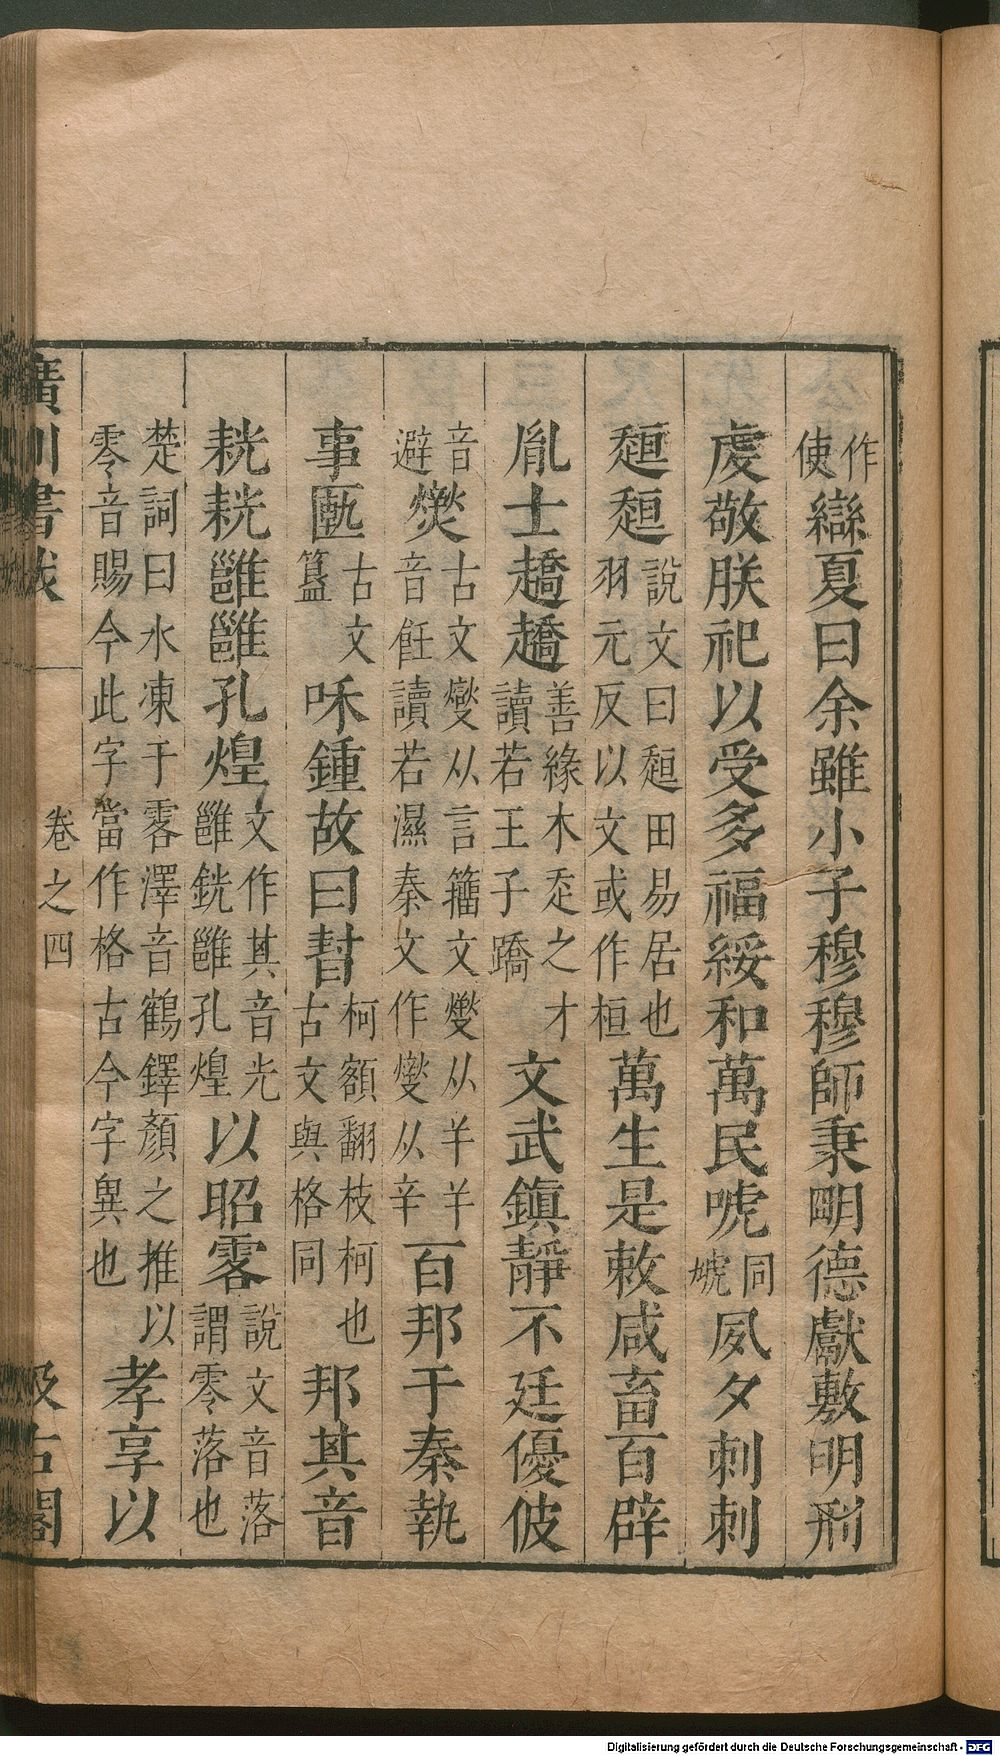 作使䜌夏曰余雖小子穆穆師秉明德獻敷明刑
虔敬朕祀以受多福綏和萬民唬同㙈夙夕刺刺
趄趄說文曰趄田易居也羽元反以文或作桓萬生是敕咸畜百辟
胤士趫趫善緣木走之才讀若王子蹻文武鎭靜不廷優彼
音避燓古文燮从言籒文燮从羊羊音飪讀若濕秦文作燮从辛百邦于秦執
事匭古文簋咊鍾故曰㫷柯額翻枝柯也古文與格同邦其音
㲾㲾雝雝孔煌文作其音光雝銧雝孔煌以昭零說文音落謂零落也
楚詞曰水凍于零澤音鶴鐸顏之推以零音賜今此字當作格古今字異也孝享以
廣川書跋
卷之四
汲古閣
Digitalisierung gefördert durch die Deutsche Forschungsgemeinschaft - DFG